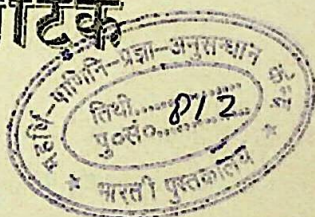 महर्षि-पाणिनि-प्रज्ञा-अनुसन्धान
तिथी..............
पु०सं०..............
812
* भारती पुस्तकालय *